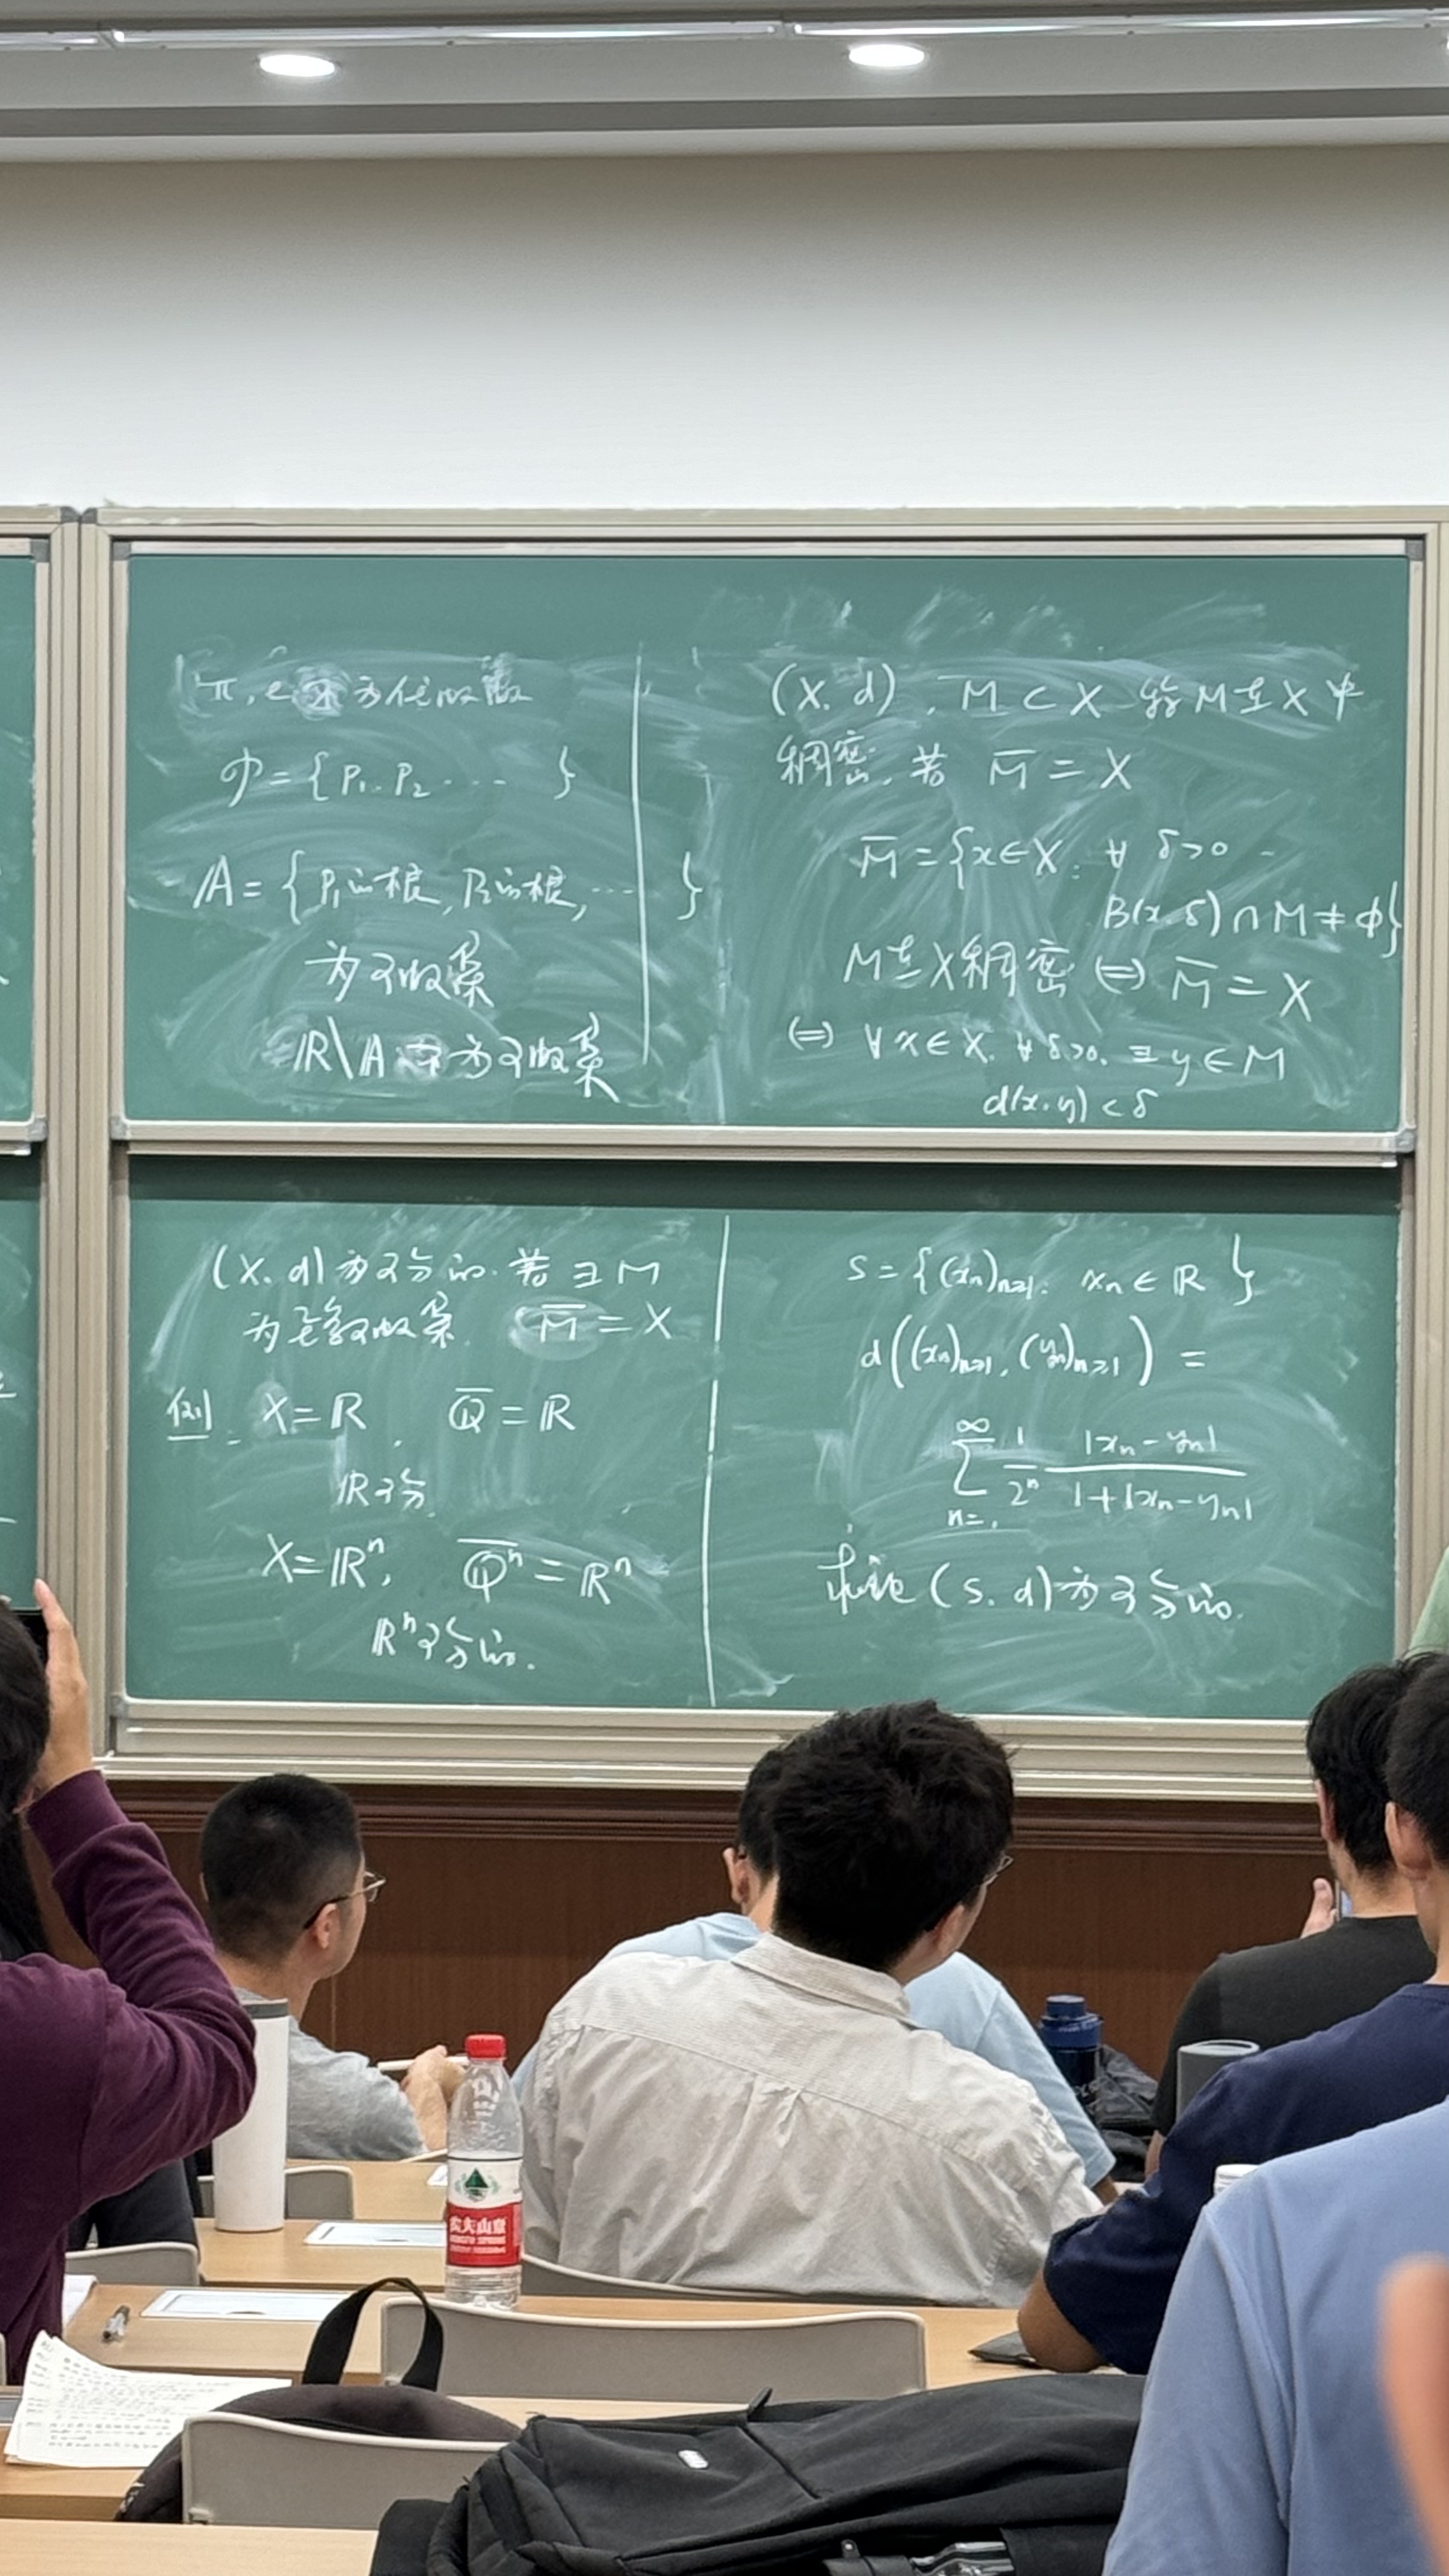 π, e 不为代数数
𝒫 = { P₁, P₂ ... }
𝔸 = { P₁的根, P₂的根, ... }
为可数集
ℝ\𝔸 不为可数集
(X, d), M ⊂ X 称 M 在 X 中
稠密, 若 M̅ = X
M̅ = { x ∈ X : ∀ δ > 0
B(x, δ) ∩ M ≠ ϕ }
M 在 X 稠密 ⟺ M̅ = X
⟺ ∀ x ∈ X, ∀ δ > 0, ∃ y ∈ M
d(x, y) < δ
(X, d) 为可分的. 若 ∃ M
为至多可数集 M̅ = X
例. X = ℝ, ℚ̅ = ℝ
ℝ可分
X = ℝⁿ, \overline{ℚⁿ} = ℝⁿ
ℝⁿ可分的.
S = { (xₙ)ₙ≥₁ : xₙ ∈ ℝ }
d((xₙ)ₙ≥₁, (yₙ)ₙ≥₁) =
\sum_{n=1}^{∞} \frac{1}{2ⁿ} \frac{|xₙ - yₙ|}{1 + |xₙ - yₙ|}
求证 (S, d) 为可分的.
农夫山泉